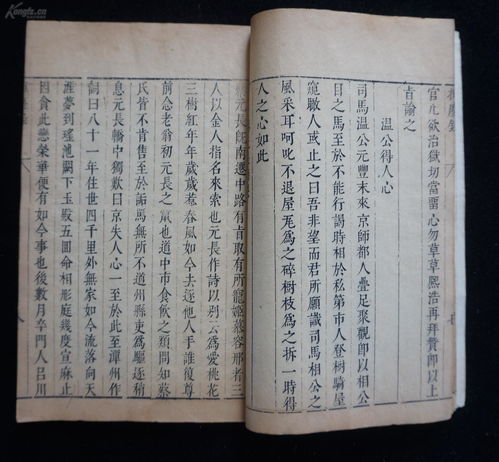 Kongfz.cn
官凡欲治獄切當畱心勿草草熙浩再拜贊即以上
旨諭之
溫公得人心
司馬溫公元豐末來京師都人疊足聚觀即以相公
目之馬至於不能行謁時相於私第市人登樹騎屋
窺瞰人或止之曰吾非望而君所願識司馬相公之
風采耳呵叱不退屋瓦為之碎樹枝為之拆一時得
人之心如此
元長既南遷中路有旨取有所寵姬慕容邢者三
人以金人指名來索也元長作詩以别云為愛桃花
三樹紅年年歲歲惹春風如今去逐他人手誰復尊
前念老翁初元長之竄也道中市食飲之類問知蔡
氏皆不肯售至於詬罵無所不道州縣吏為驅逐稍
息元長轎中獨歎曰京失人心一至於此至潭州作
詞曰八十一年住世四千里外無家如今流落向天
涯夢到瑤池闕下玉殿五回命相彤庭幾度宣麻止
因貪此戀榮華便有如今事也後數月卒門人呂川